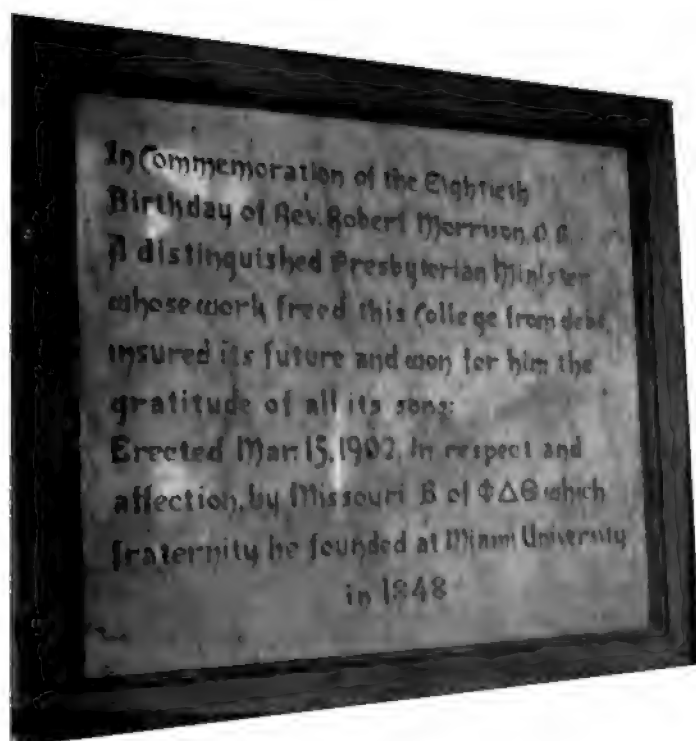 In Commemoration of the Eightieth
Birthday of Rev. Robert Morrison, D. D.
A distinguished Presbyterian Minister
whose work freed this College from debt,
insured its future and won for him the
gratitude of all its sons:
Erected Mar. 15, 1902, In respect and
affection, by Missouri B of ΦΔΘ which
fraternity he founded at Miami University
in 1848